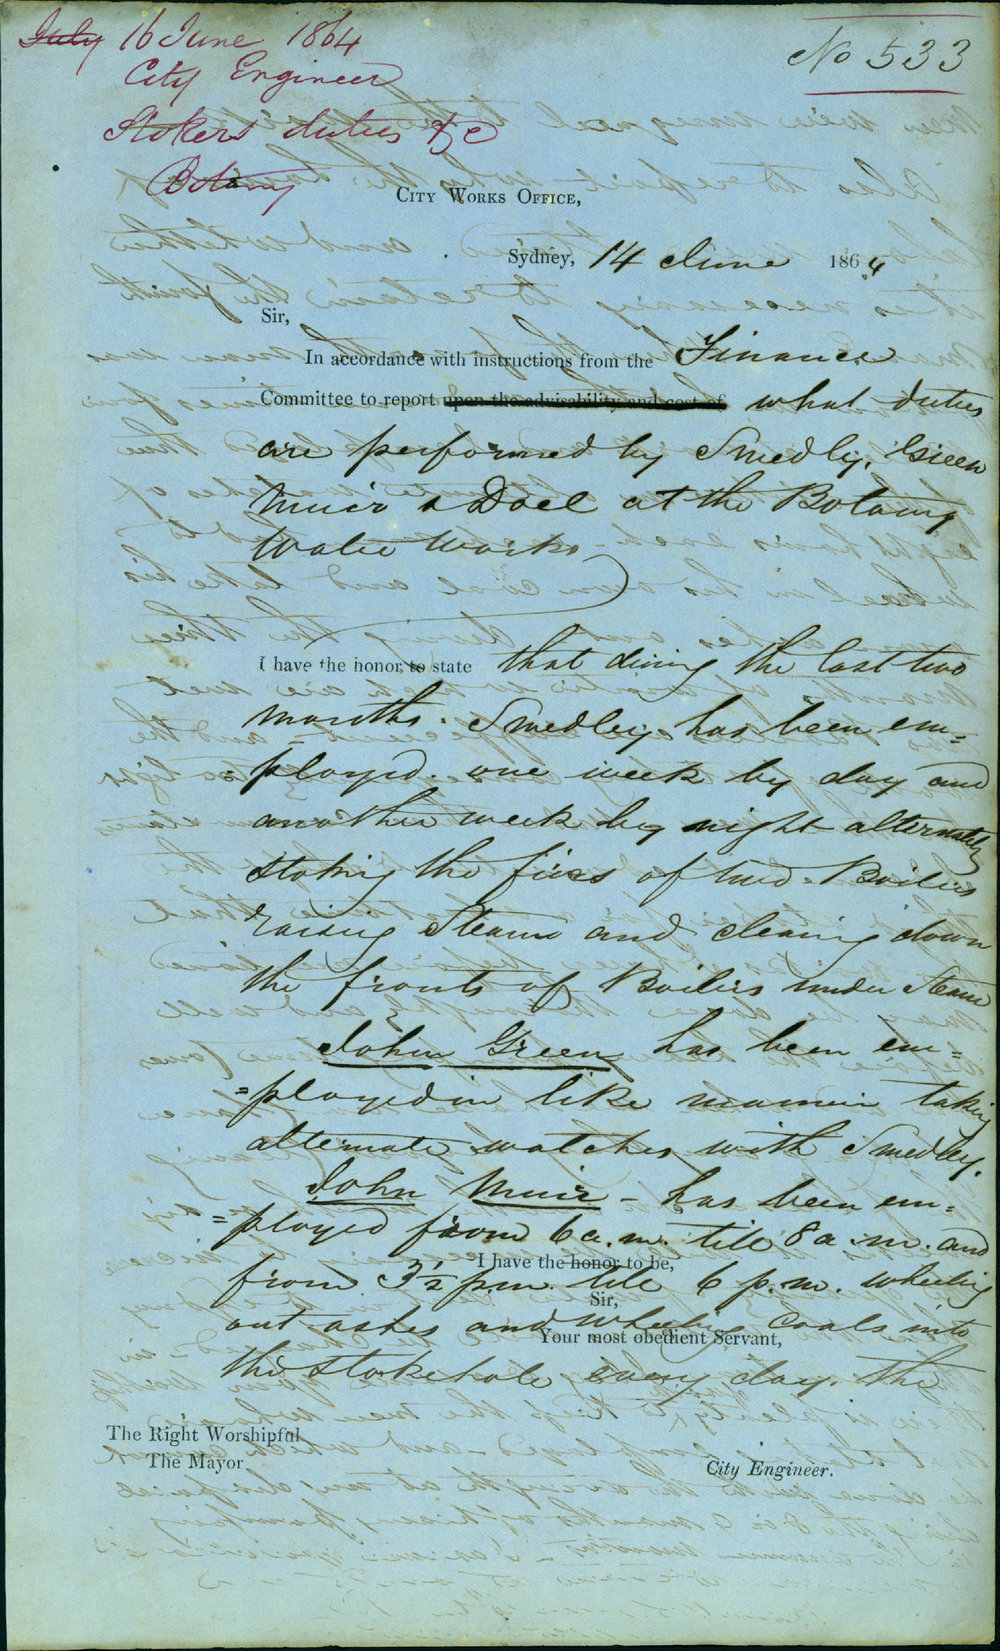 July 16 June 1864
City Engineer
Stokers duties &c
Botany
No 533
City Works Office,
Sydney, 14 June 1864
Sir,
In accordance with instructions from the Finance
Committee to report upon the advisability and cost of what duties
are performed by Smedly. Green
Muir & Doel at the Botany
Water Works
I have the honor, to state that during the last two
months. Smedley has been em=
=ployed. one week by day and
another week by night alternately
stoking the fires of two Boilers
raising Steam and cleaning down
the fronts of Boilers under Steam
John Green has been em=
=ployed in like manner taking
alternate watches with Smedley.
John Muir - has been em=
=ployed from 6 a.m. till 8 a.m. and
I have the honor to be,
from 3½ p.m. till 6 p.m. wheeling
Sir,
out ashes and wheeling Coals into
Your most obedient Servant,
the stokehole every day. the
The Right Worshipful
The Mayor
City Engineer.